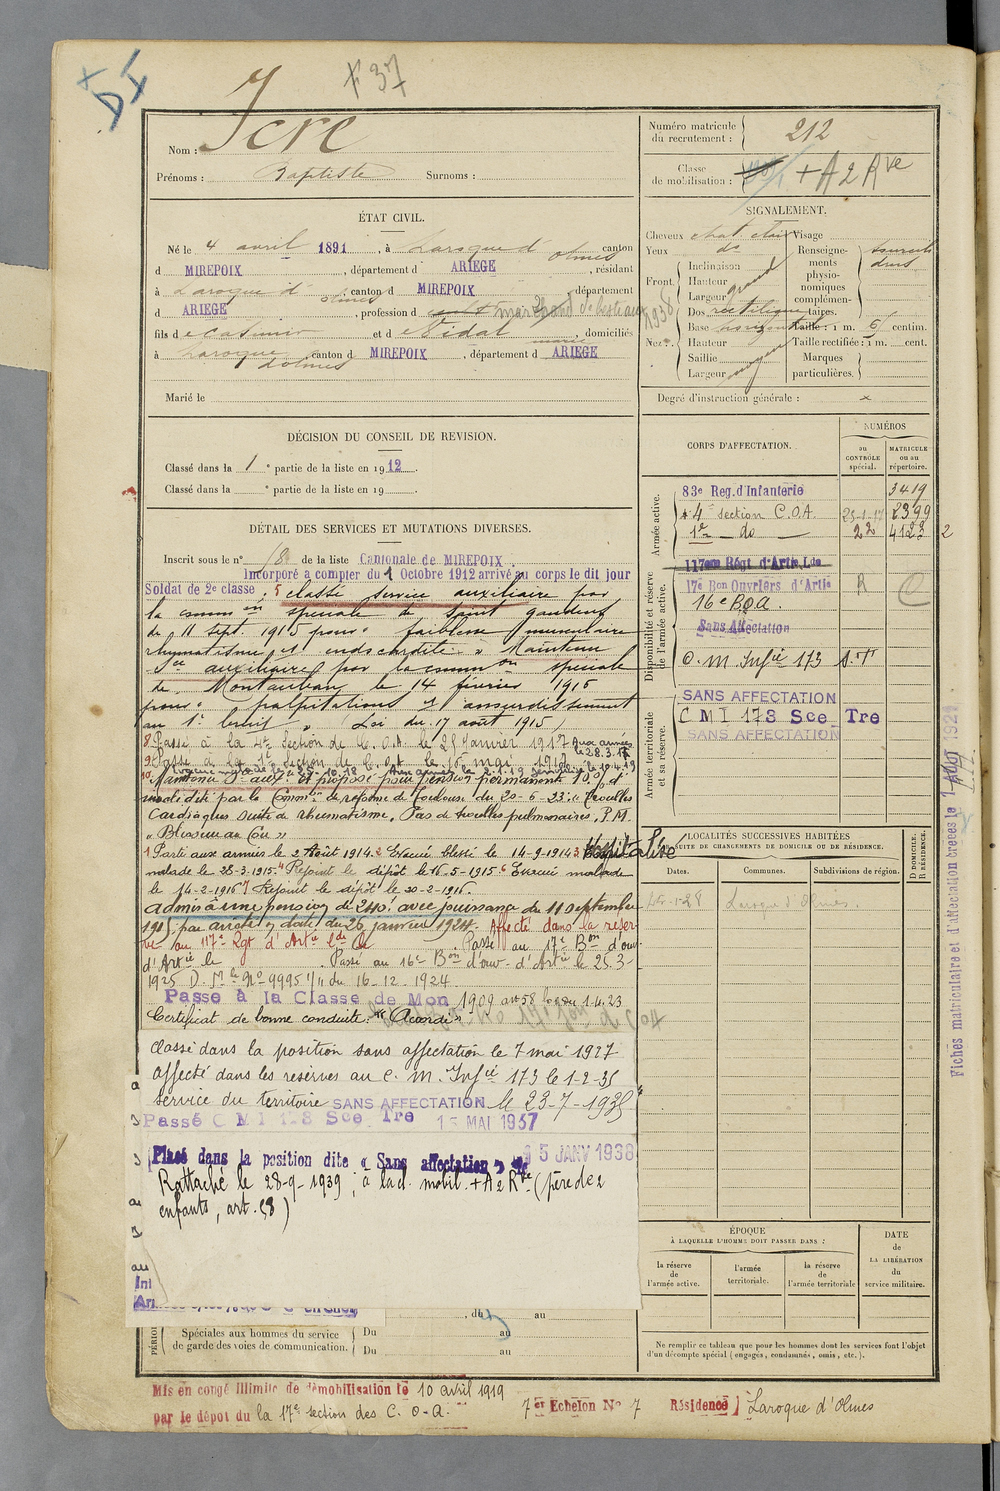 + DI
F 37
Nom : Icre
Prénoms : Baptiste Surnoms :
ÉTAT CIVIL.
Né le 4 avril 1891, à Laroque d'olmes canton
d MIREPOIX, département d ARIEGE, résidant
à Laroque d'olmes, canton d MIREPOIX, département
d ARIEGE, profession d marchand de bestiaux 1938
fils de Casimir et de Vidal Marie, domiciliés
à Laroque d'olmes canton d MIREPOIX, département d ARIEGE
Marié le
DÉCISION DU CONSEIL DE REVISION.
Classé dans la 1e partie de la liste en 1912.
Classé dans la e partie de la liste en 19
DÉTAIL DES SERVICES ET MUTATIONS DIVERSES.
Inscrit sous le n° 18 de la liste Cantonale de MIREPOIX.
Incorporé a compter du 1 Octobre 1912 arrivé au corps le dit jour
Soldat de 2e classe. 5 classé service auxiliaire par
la comm on spéciale de Saint gaudens
du 11 sept. 1915 pour faiblesse musculaire
rhumatisme et endocardite. Maintenu
Sce auxiliaire par la comm on spéciale
de Montauban le 14 février 1916
pour palpitations et assourdissement
au 1er bruit (Loi du 17 août 1915)
8 Passé à la 4e Section de C.O.A. le 25 Janvier 1917 aux armées le 28.3.17
9 Passé à la 1e Section de C.O.A. le 16 mai 1918
10 Maintenu Sce aux. et proposé pour pension permanente 10% d'
invalidité par la Comm on de réforme de Toulouse du 20-6-23 "Troubles
Cardiaques suite de rhumatisme. Pas de troubles pulmonaires. P.M.
"Blessure au Cou"
1 Parti aux armées le 2 Août 1914. 2 Evacué blessé le 14-9-1914 3 Hospitalisé
malade le 28-3-1915. 4 Rejoint le dépôt le 16-5-1915. 6 Evacué malade
le 14-2-1916 7 Rejoint le dépôt le 20-2-1916.
admis à une pension de 240f avec jouissance du 11 septembre
1915 par arrêté en date du 26 janvier 1924. Affecté dans la réser-
ve au 117e Rgt d'Artie Lde le . Passé au 17e Bon d'ouv-
d'Artie le . Passé au 16e Bon d'ouv. d'Artie le 25-3-
1925 D. Mle No 9995 1/11 du 16-12-1924.
Passé à la Classe de Mon 1909 art 58 loi du 1.4.23
Certificat de bonne conduite: "Acordé"
Classé dans la position sans affectation le 7 mai 1927
affecté dans les réserves au C. M. Infie 173 le 1-2-35
service du territoire SANS AFFECTATION le 23-7-1935
Passé C M I 173 Sce Tre 15 MAI 1937
Placé dans la position dite "Sans affectation" le 5 JANV 1938
Rattaché le 28-9-1939, à la cl. mobil. + A 2 Rve (père de 2
enfants, art. 58)
, du au
Spéciales aux hommes du service
de garde des voies de communication.
Du au
Du au
Mis en congé illimité de démobilisation le 10 avril 1919
par le dépot du la 17e section des C. O-A.
7 er Echelon No 7 Résidence ) Laroque d'Olmes
Numéro matricule
du recrutement : 212
Classe
de mobilisation : + A 2 Rve
SIGNALEMENT.
Cheveux chat clair Visage
Yeux do
Front. Inclinaison
Hauteur
Largeur grand
Nez. Dos rectiligne
Base horizontal
Hauteur
Saillie
Largeur moyen
Renseignements
physionomiques
complémentaires.
Taille : 1 m. 61 centim.
Taille rectifiée : 1 m. cent.
Marques
particulières.
Degré d'instruction générale : x
CORPS D'AFFECTATION.
NUMÉROS
au CONTRÔLE spécial.
MATRICULE ou au répertoire.
Armée active.
83e Reg. d'Infanterie 3419
4e section C.O.A. 25-1-17 2399
1re - do - 22 4123 2
Disponibilité et réserve
de l'armée active.
117eme Régt d'Artie Lde
17e Bon Ouvriers d'Artie R C
16e B.O.A.
Sans Affectation
C. M. Infie 173 S.T
Armée territoriale
et sa réserve.
SANS AFFECTATION
C M I 173 Sce Tre
SANS AFFECTATION
LOCALITÉS SUCCESSIVES HABITÉES
PAR SUITE DE CHANGEMENTS DE DOMICILE OU DE RÉSIDENCE.
Dates. Communes. Subdivisions de région.
D DOMICILE.
R RÉSIDENCE.
Laroque d'Olmes.
Fiches matriculaire et d'affectation créées le 1 AOUT 1929
ÉPOQUE
À LAQUELLE L'HOMME DOIT PASSER DANS :
la réserve de l'armée active.
l'armée territoriale.
la réserve de l'armée territoriale
DATE
de
LA LIBÉRATION
du
service militaire.
Ne remplir ce tableau que pour les hommes dont les services font l'objet
d'un décompte spécial (engagés, condamnés, omis, etc.).